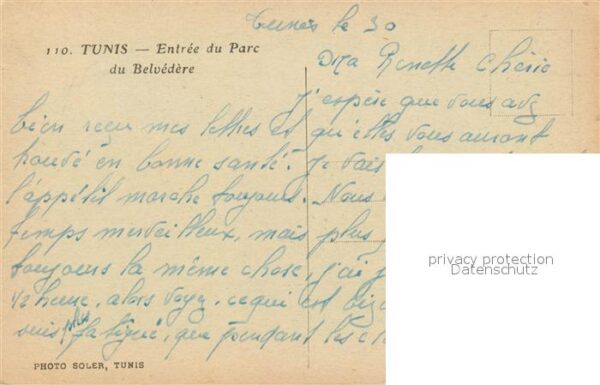 Tunis le 30
110. TUNIS — Entrée du Parc
du Belvédère
Ma Renette Chérie
J'espère que vous avez
bien reçu mes lettres et qu'elles vous auront
trouvé en bonne santé. Je vais
l'appétit marche toujours. Nous
temps merveilleux, mais plus
toujours la même chose, j'ai
1/2 heure, alors voyez, ce qui est
suis plus fatigué, que pendant les
privacy protection
Datenschutz
PHOTO SOLER, TUNIS